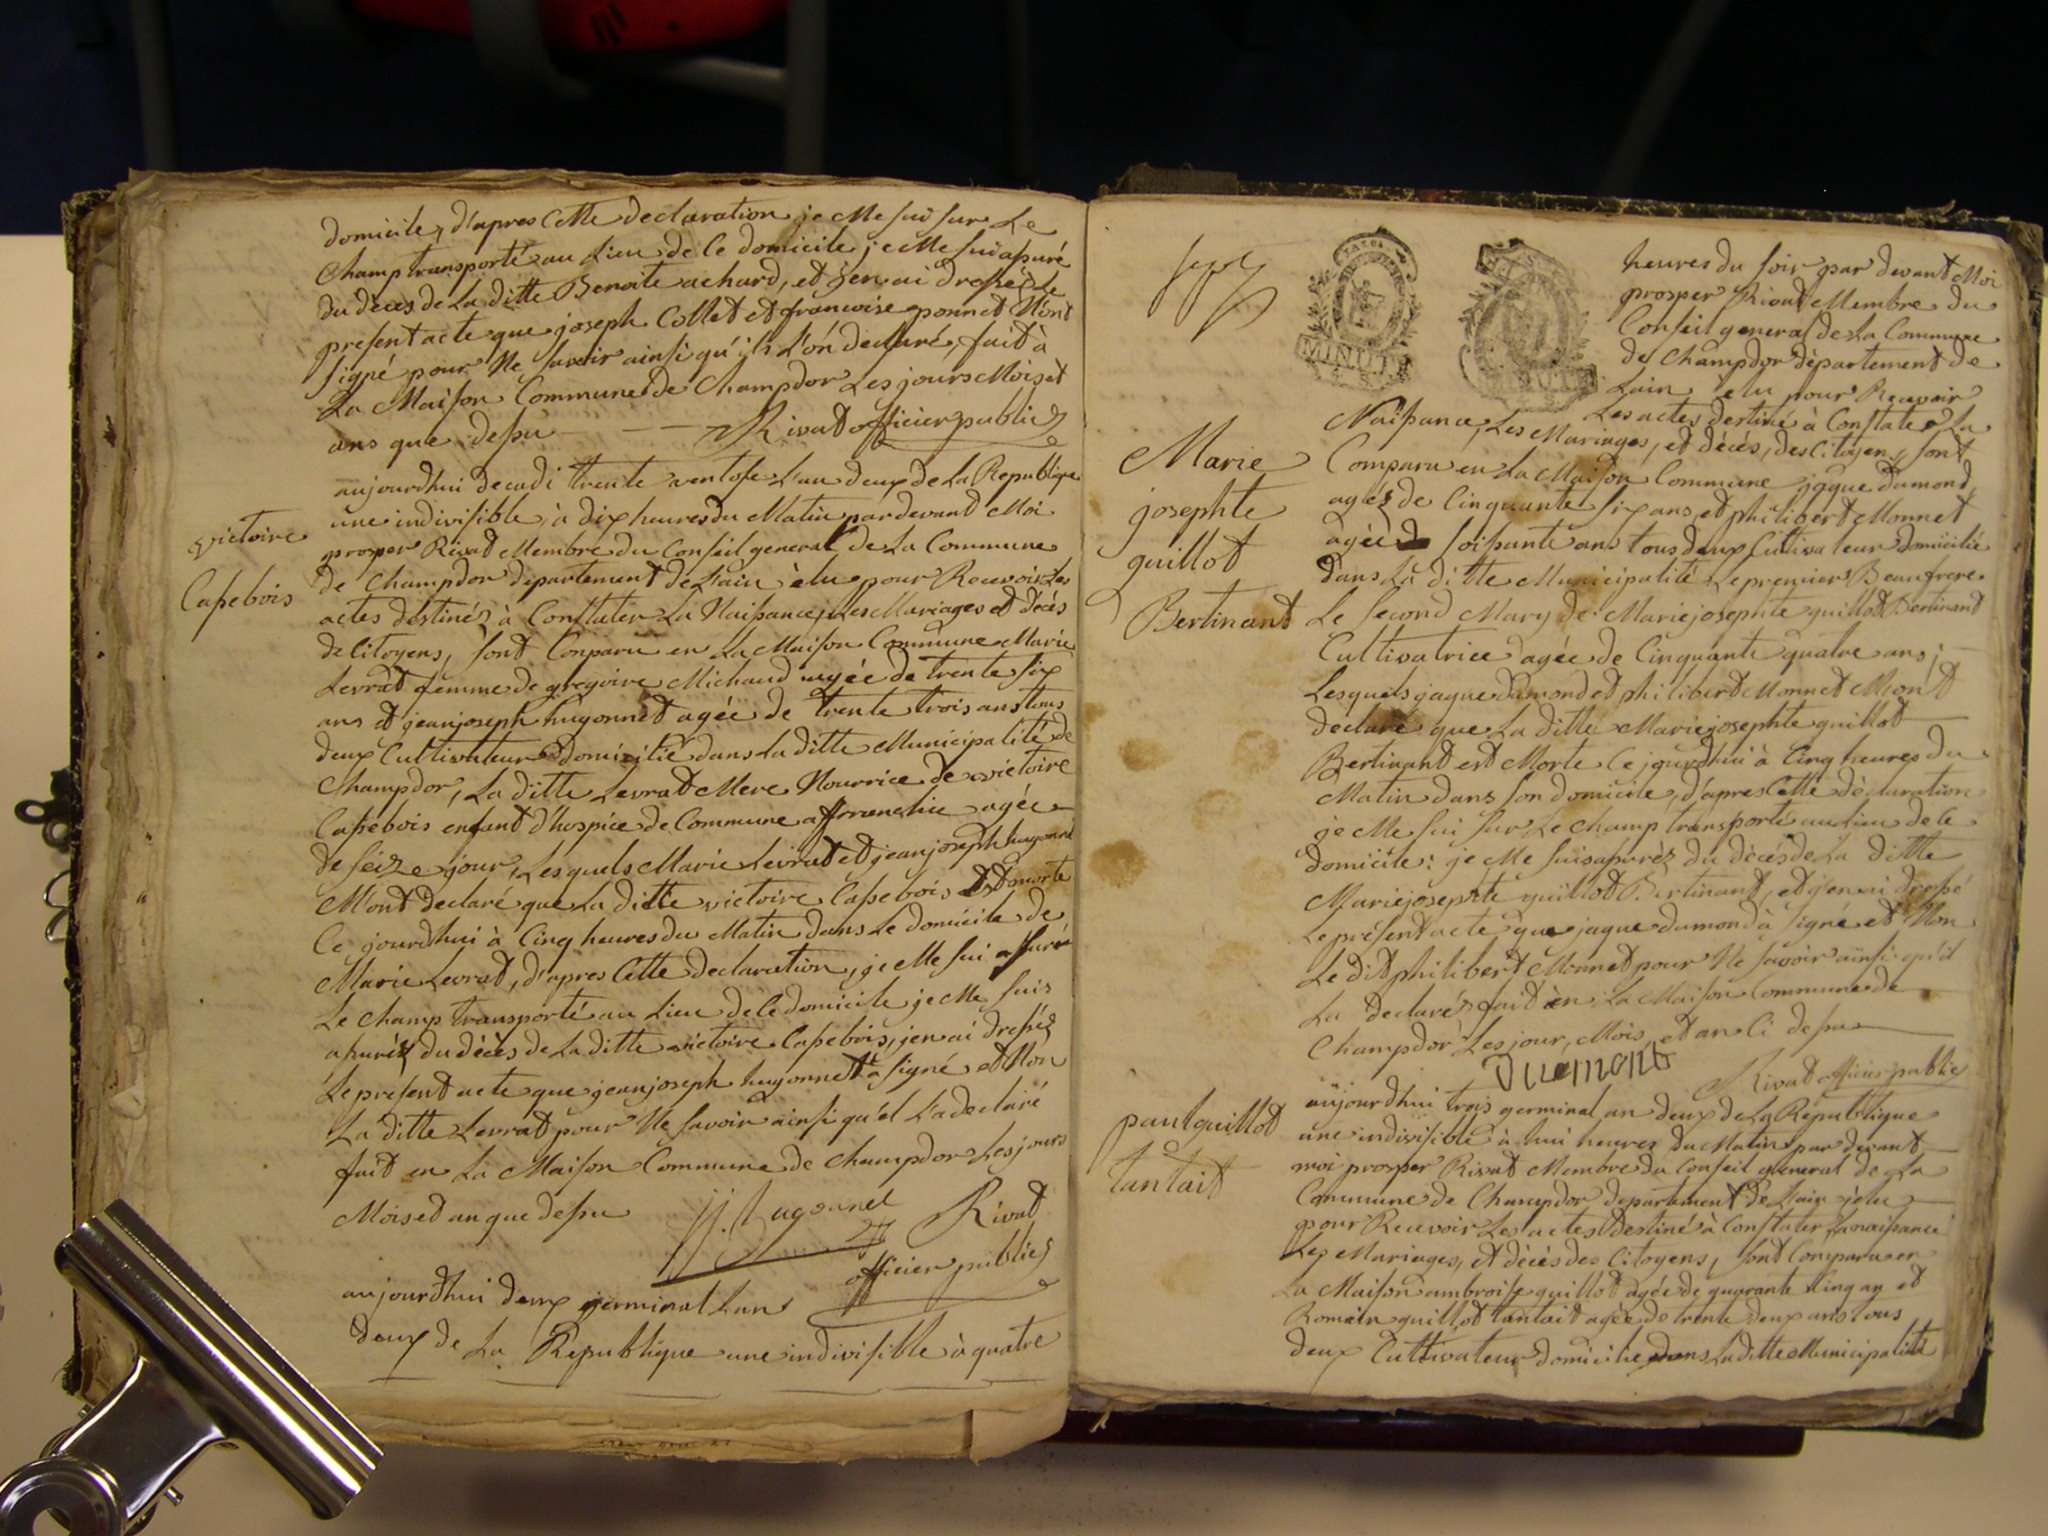 domicile, d'apres Cette declaration je Me sui sur Le
Champ transporté au Lieu de Ce domicile, je Me suis assuré
du déces de La ditte Benoite achard, et j'en ai dressé Le
present acte que joseph Collet et francoise ponnet N'ont
signé pour Ne savoir ainsi qu'ils L'on declaré, fait à
La Maison Commune de Champdor Les jours Mois et
ans que dessu Rivat officier public
aujourdhui decadi trente ventose L'an deux de La Republique
une indivisible, à dix heures du Matin pardevant Moi
victoire
Cassebois
prosper Rivat Membre du Conseil general de La Commune
de Champdor departement de L'ain elu pour Recevoir Les
actes destinéz à Constater La Naissance, Les Mariages et décés
de Citoyens, sont Conparu en La Maison Commune Marie
Levrat femme de gregoire Michaud agée de trente six
ans et jeanjoseph hugonnet agée de trente trois ans tous
deux Cultivateur domicilié dans La ditte Municipalité de
Champdor, La ditte Levrat Mere Nourrice de victoire
Cassebois enfant d'hospice de Commune affranchie agée
de seize jour, Lesquels Marie Levrat et jeanjoseph hugonnet
Mont declaré que La ditte victoire Cassebois est morte
Ce jourdhui à Cinq heures du Matin dans Le domicile de
Marie Levrat, d'apres Cette declaration, je Me sui assuré
Le Champ transporté au Lieu de Ce domicile je Me suis
assuréz du décès de La ditte victoire Cassebois, jen ai dresséz
Le present acte que jeanjoseph hugonnet à signé et Non
La ditte Levrat pour Ne savoir ainsi qu'el L'a declaré
fait en La Maison Commune de Champdor Les jours
Mois et an que dessu jj. hugonnet Rivat
officier public
aujourdhui deux germinal Lan
deux de La Republique une indivisible à quatre
MINUTE
heures du soir par devant Moi
prosper Rivat Membre du
Conseil general de La Commune
de Champdor département de
Lain elu pour Recevoir
Les actes destiné à Constater La
Naissance, Les Mariages, et décés, des Citoyens, sont
Marie
josephte
guillot
Bertinant
Comparu en La Maison Commune jaque dumond
agéz de Cinquante six ans, et philibert Monnet
agée soissante ans tous deux Cultivateur domicilié
dans La ditte Municipalité Le premier Beaufrere
Le second Mary de Mariejosephte guillot Bertinand
Cultivatrice agée de Cinquante quatre ans;
Lesquels jaque dumond et philibert Monnet M'on't
declaré que La ditte Mariejosephte guillot
Bertinand est Morte Ce jourdhui à Cinq heures du
Matin dans son domicile, d'apres Cette déclaration
je Me sui sur Le Champ transporté au Lieu de Ce
domicile: je Me suis assuréz du décés de La ditte
Mariejosephte guillot Bertinant, et j'en ai dressé
Le présent acte que jaque dumond à signé et Non
Le dit philibert Monnet pour Ne savoir ainsi qu'il
La declaréz fait en La Maison Commune de
Champdor Les jour, Mois, et an Ci dessu
Dumont Rivat officier public
paul guillot
tantait
aujourdhui trois germinal, an deux de La Republique
une indivisible à hui heures du Matin par devant
moi prosper Rivat Membre du Conseil general de La
Commune de Champdor departement de Lain élu
pour Recevoir Les actes destiné à Constater La naissance
Les Mariages, et décès des Citoyens, sont Comparu en
La Maison ambroise guillot agée de quarante Cinq an et
Romain guillot tantait agée de trente deux ans tous
deux Cultivateur domicilié dans La ditte Municipalité